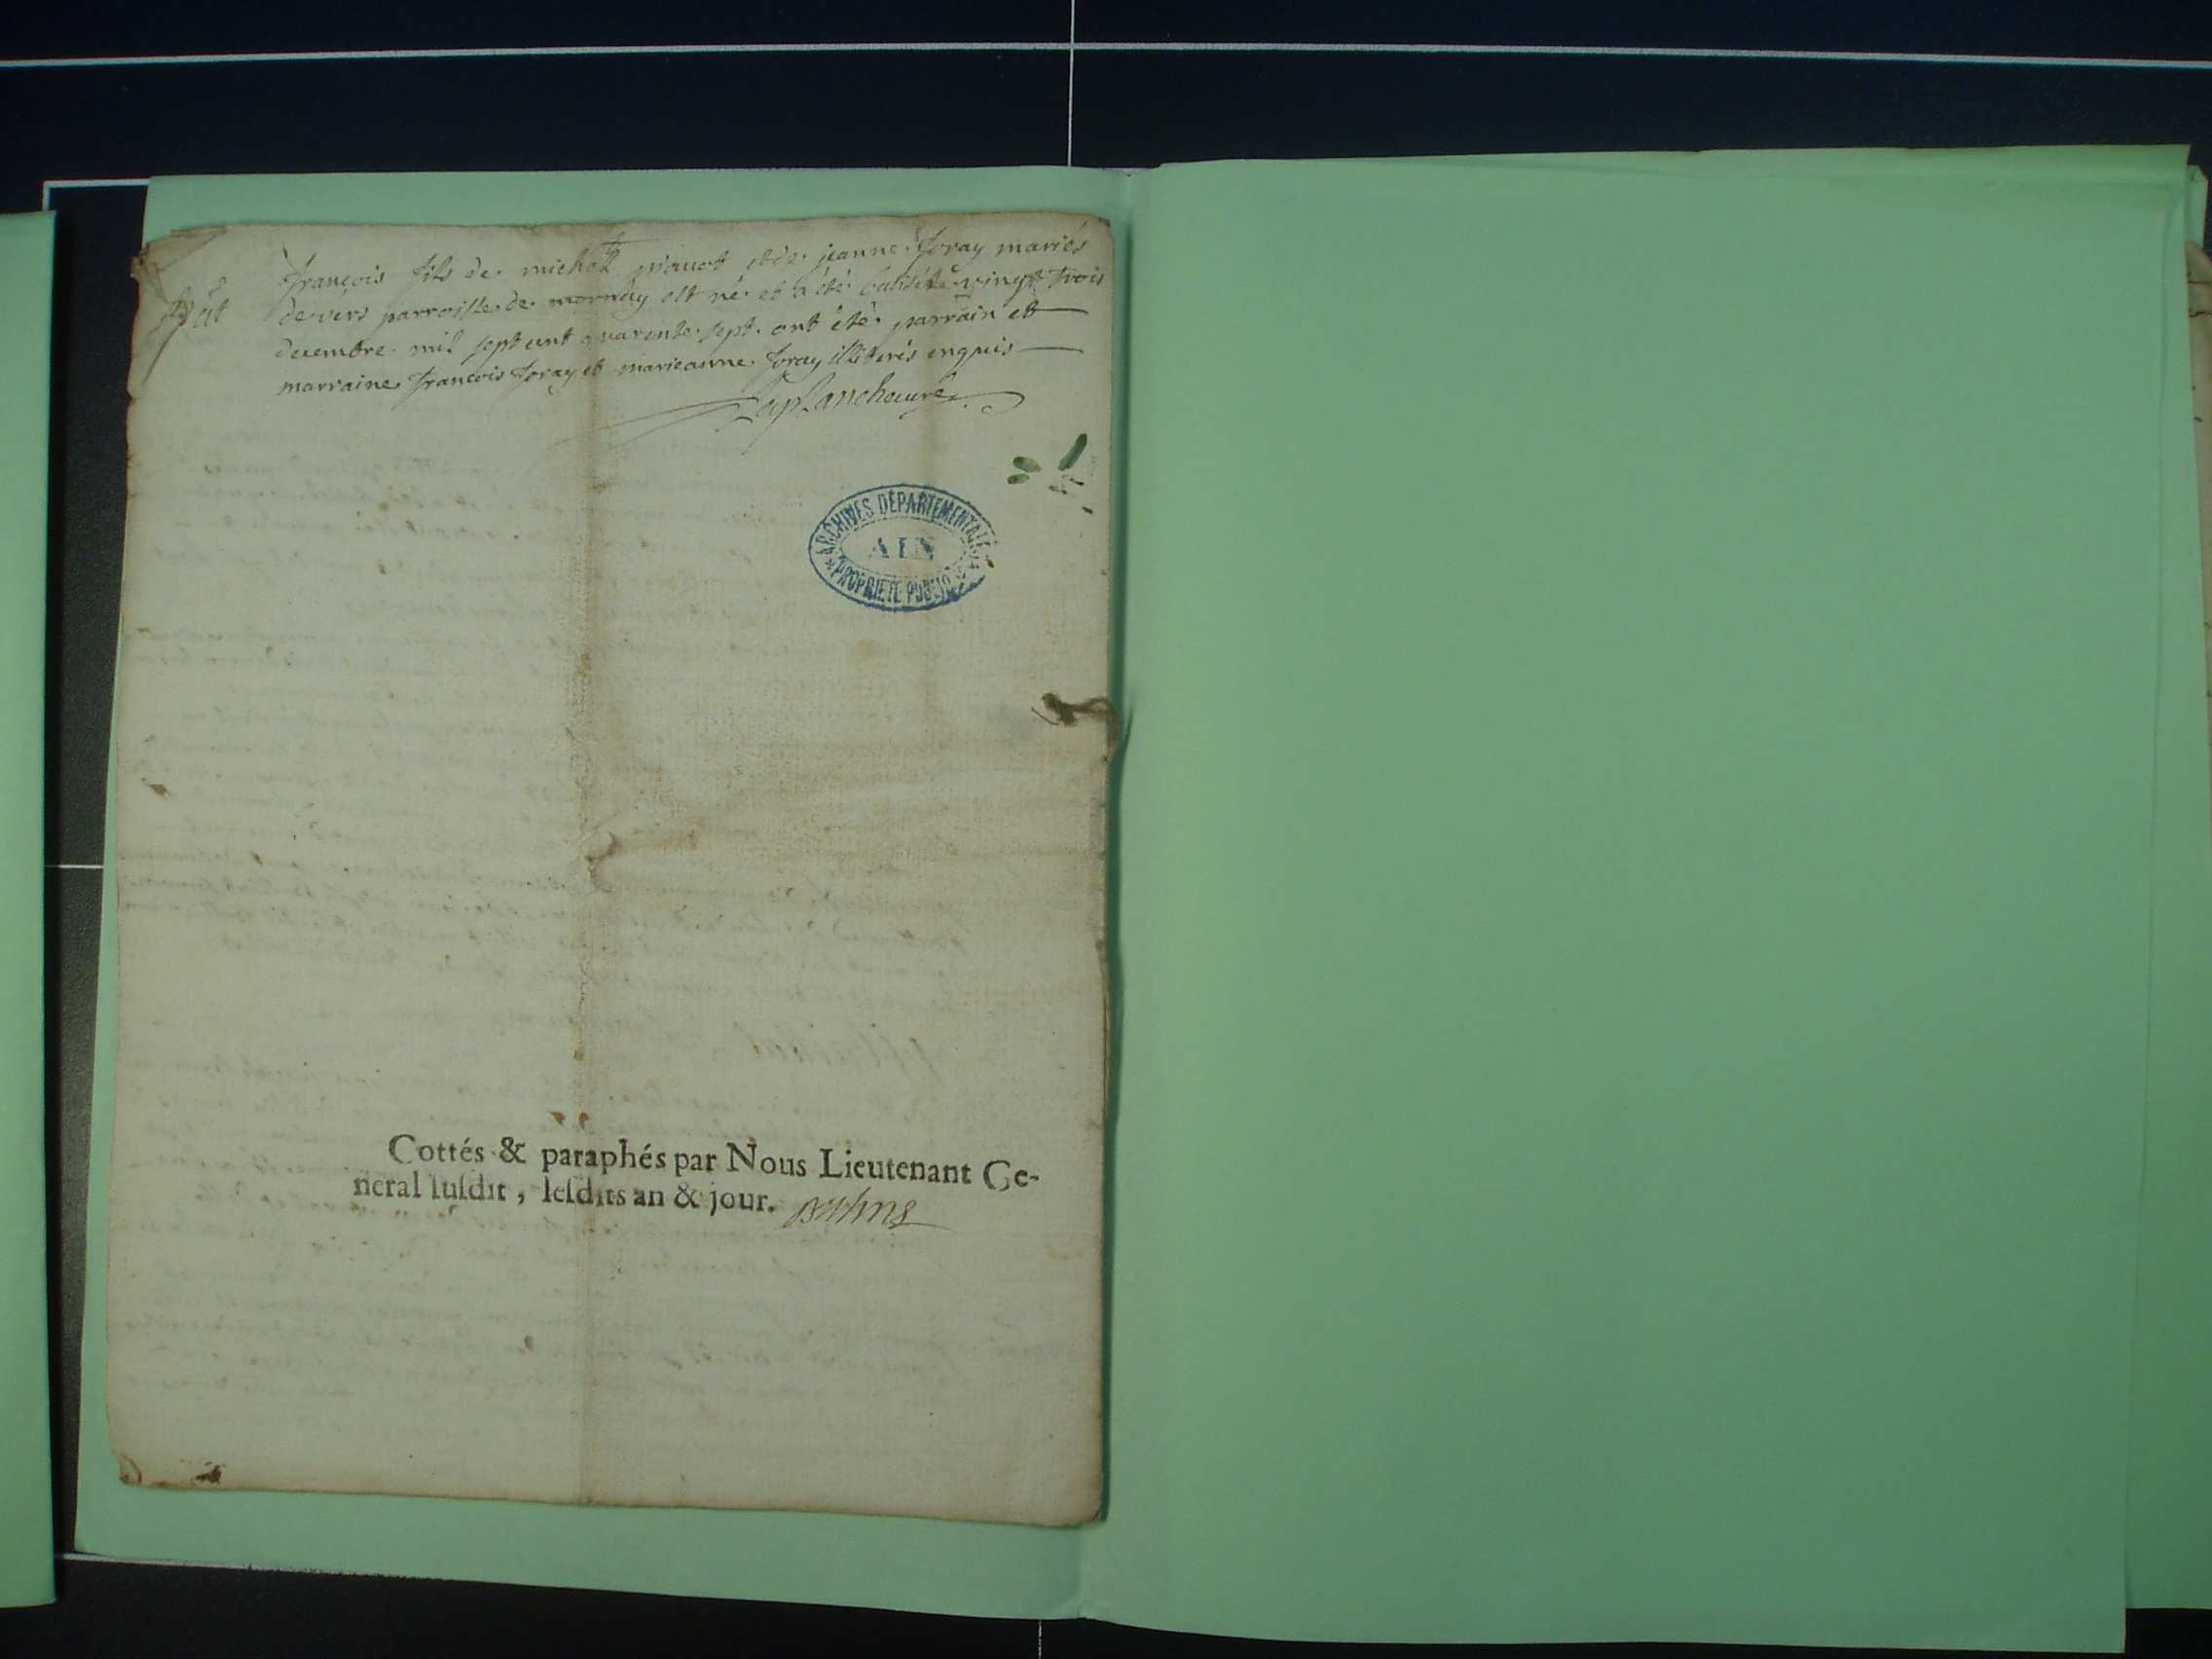 françois fils de michel piquot et de jeanne foray mariés
de vers parroisse de mornay est né et a été batisé le vingt trois
decembre mil sept cent quarente sept. ont été parrain et
marraine françois foray et marieanne foray illiterés enquis
Laplanche curé
ARCHIVES DÉPARTEMENTALES
AIN
PROPRIÉTÉ PUBLIQUE
Cottés & paraphés par Nous Lieutenant Ge-
neral susdit, lesdits an & jour.